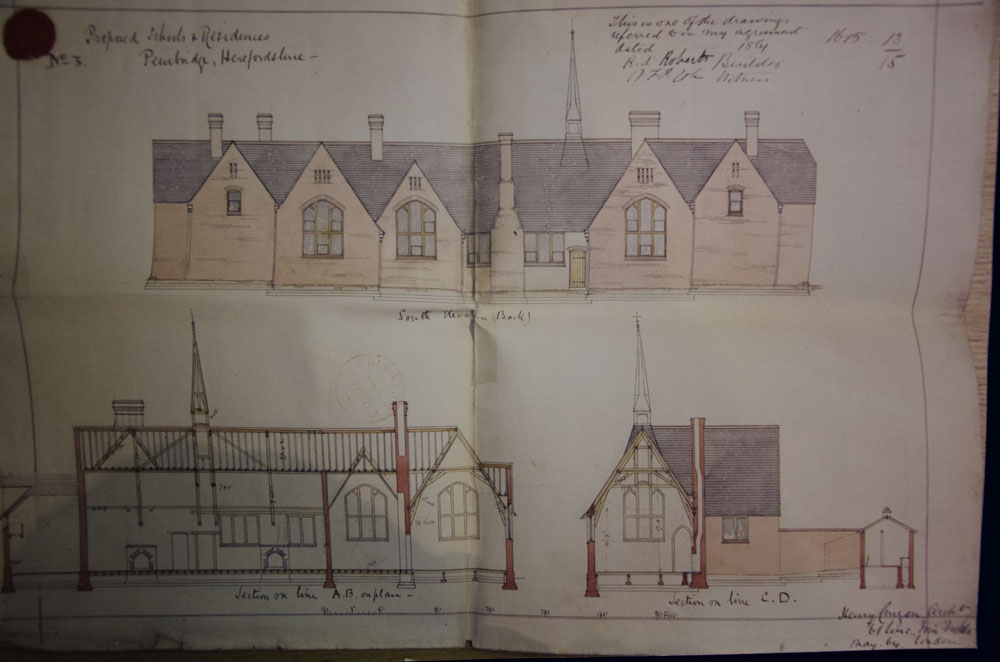 Proposed Schools & Residences
No. 3. Pembridge, Herefordshire -
This is one of the drawings
referred to in my agreement
dated 1864
Roberts Builder
Witness
1615 13/15
South Elevation (Back)
Section on line A.B. on plan -
Section on line C.D.
Henry Curzon Archt
London